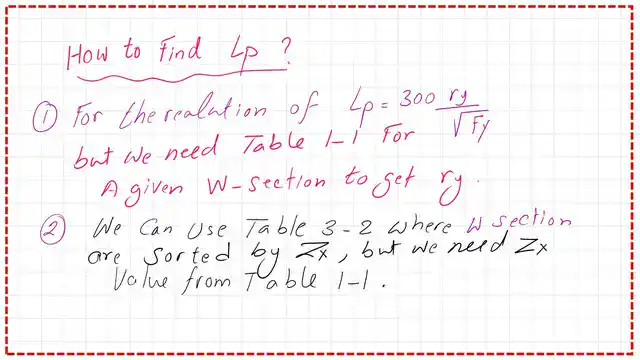 How to Find Lp ?
① For the realution of Lp = 300 ry/√Fy
but we need Table 1-1 For
A given W-section to get ry.
② We Can Use Table 3-2 where W section
are sorted by Zx, but we need Zx
Value from Table 1-1.